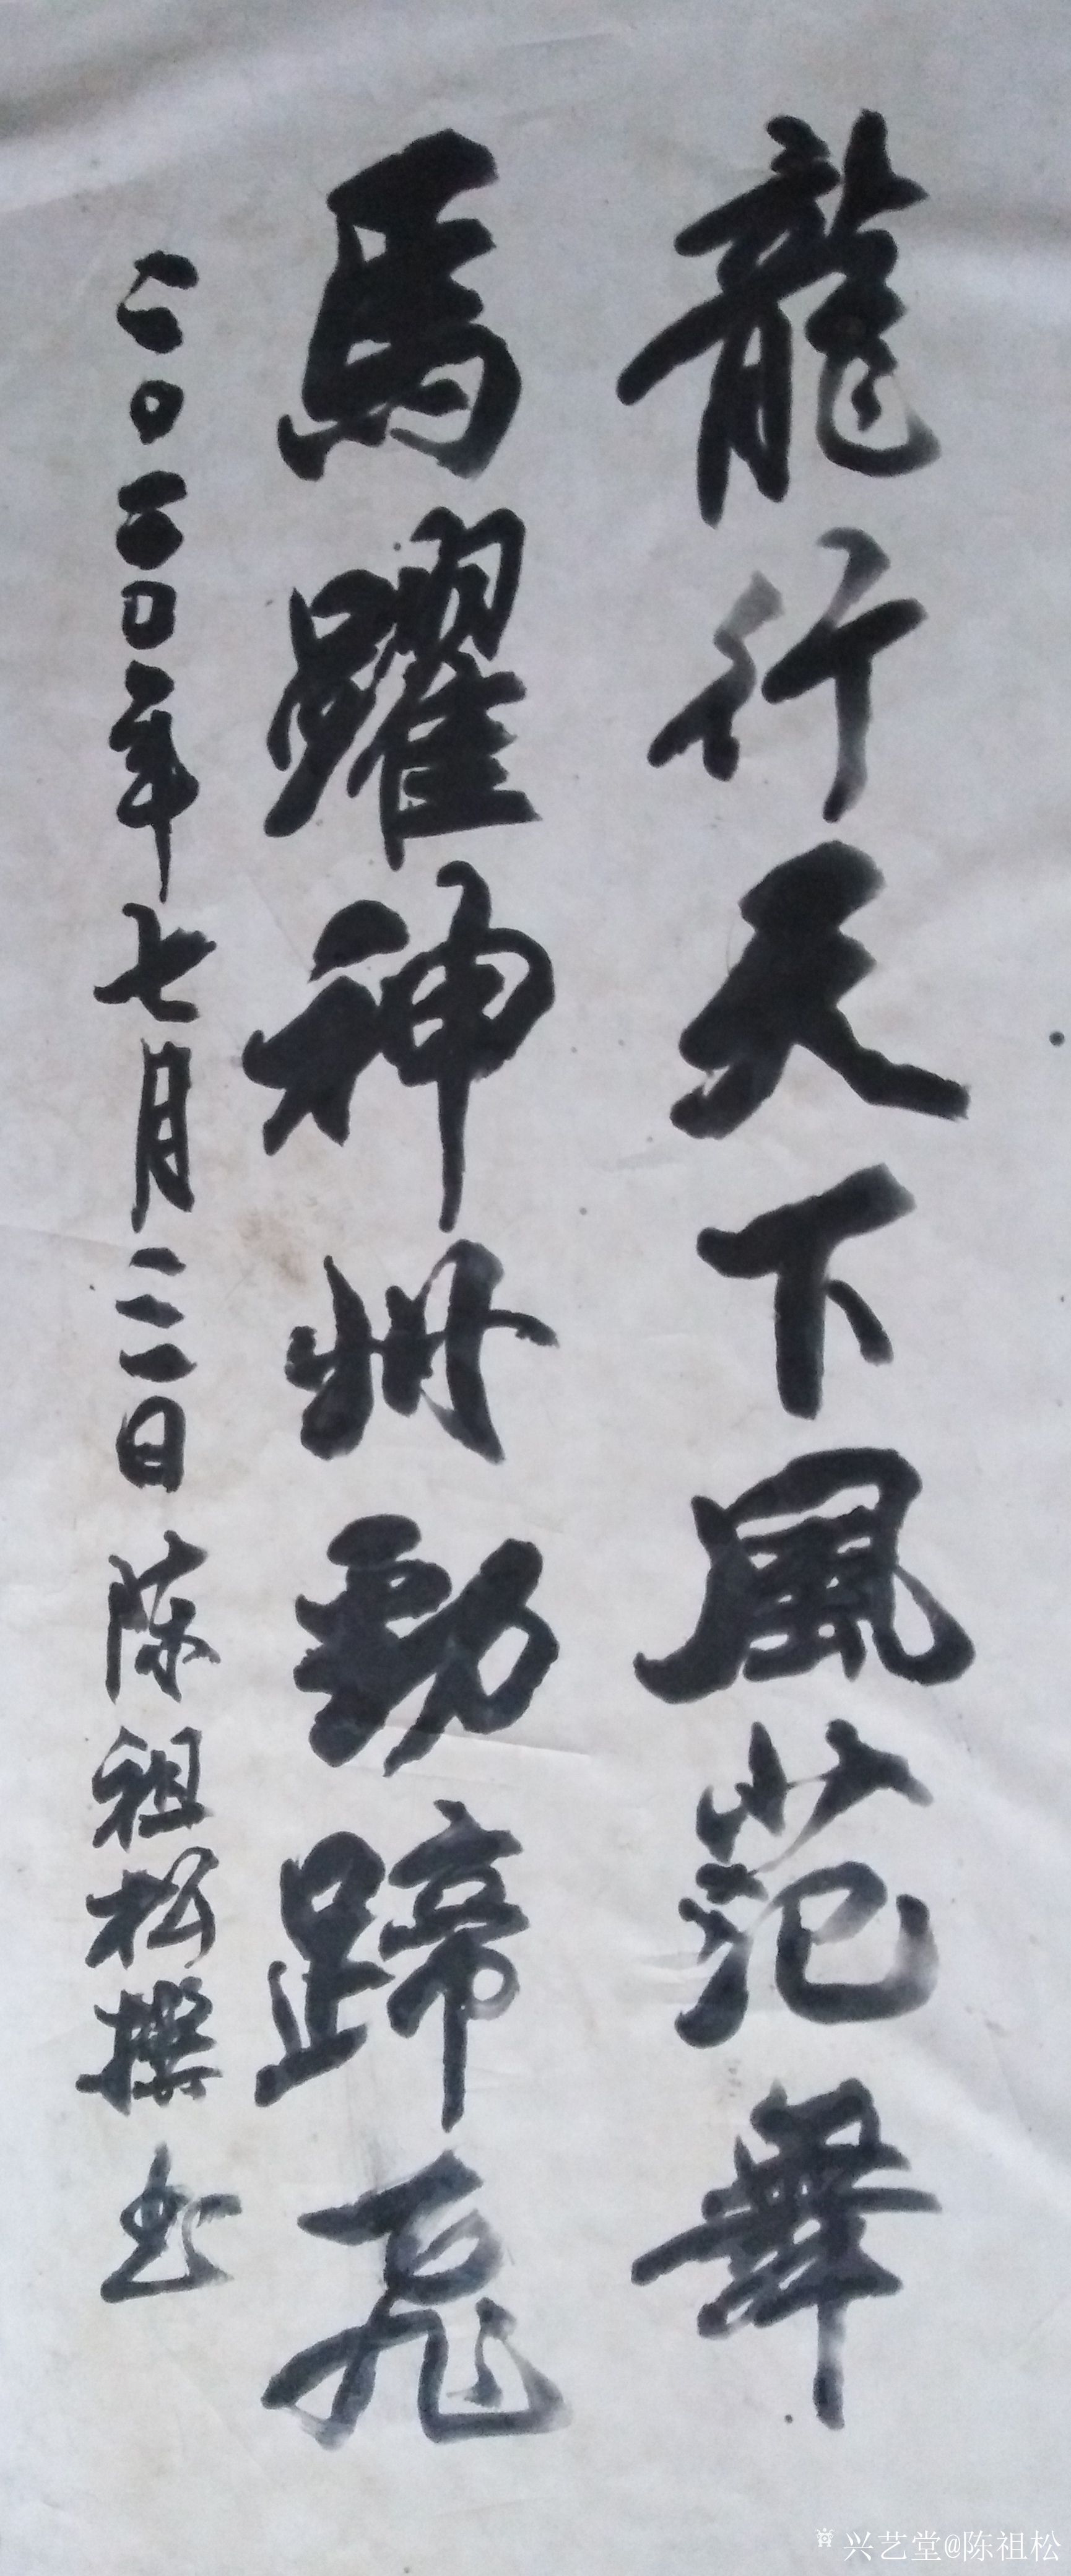 龍行天下風范舞
馬躍神州勁蹄飛
二〇二〇年七月二二日陈祖松撰书
兴艺堂@陈祖松